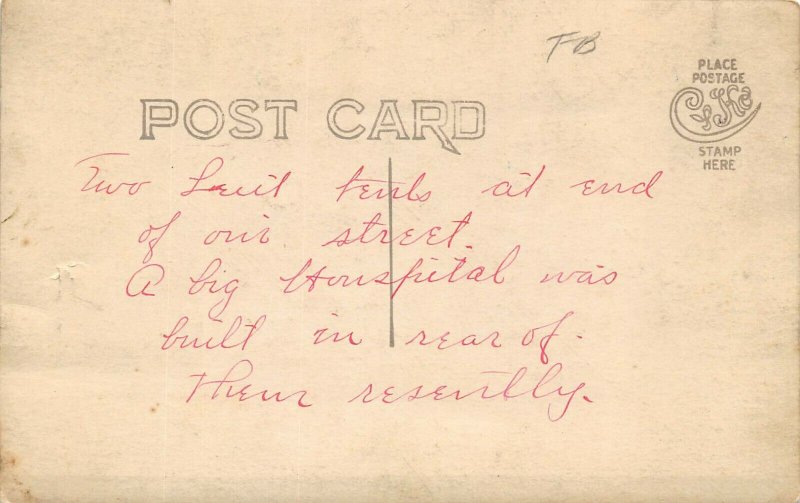 TB
PLACE
POSTAGE
STAMP
HERE
POST CARD
Two Leut tents at end
of our street.
A big Houspital was
built in rear of.
Them resently.